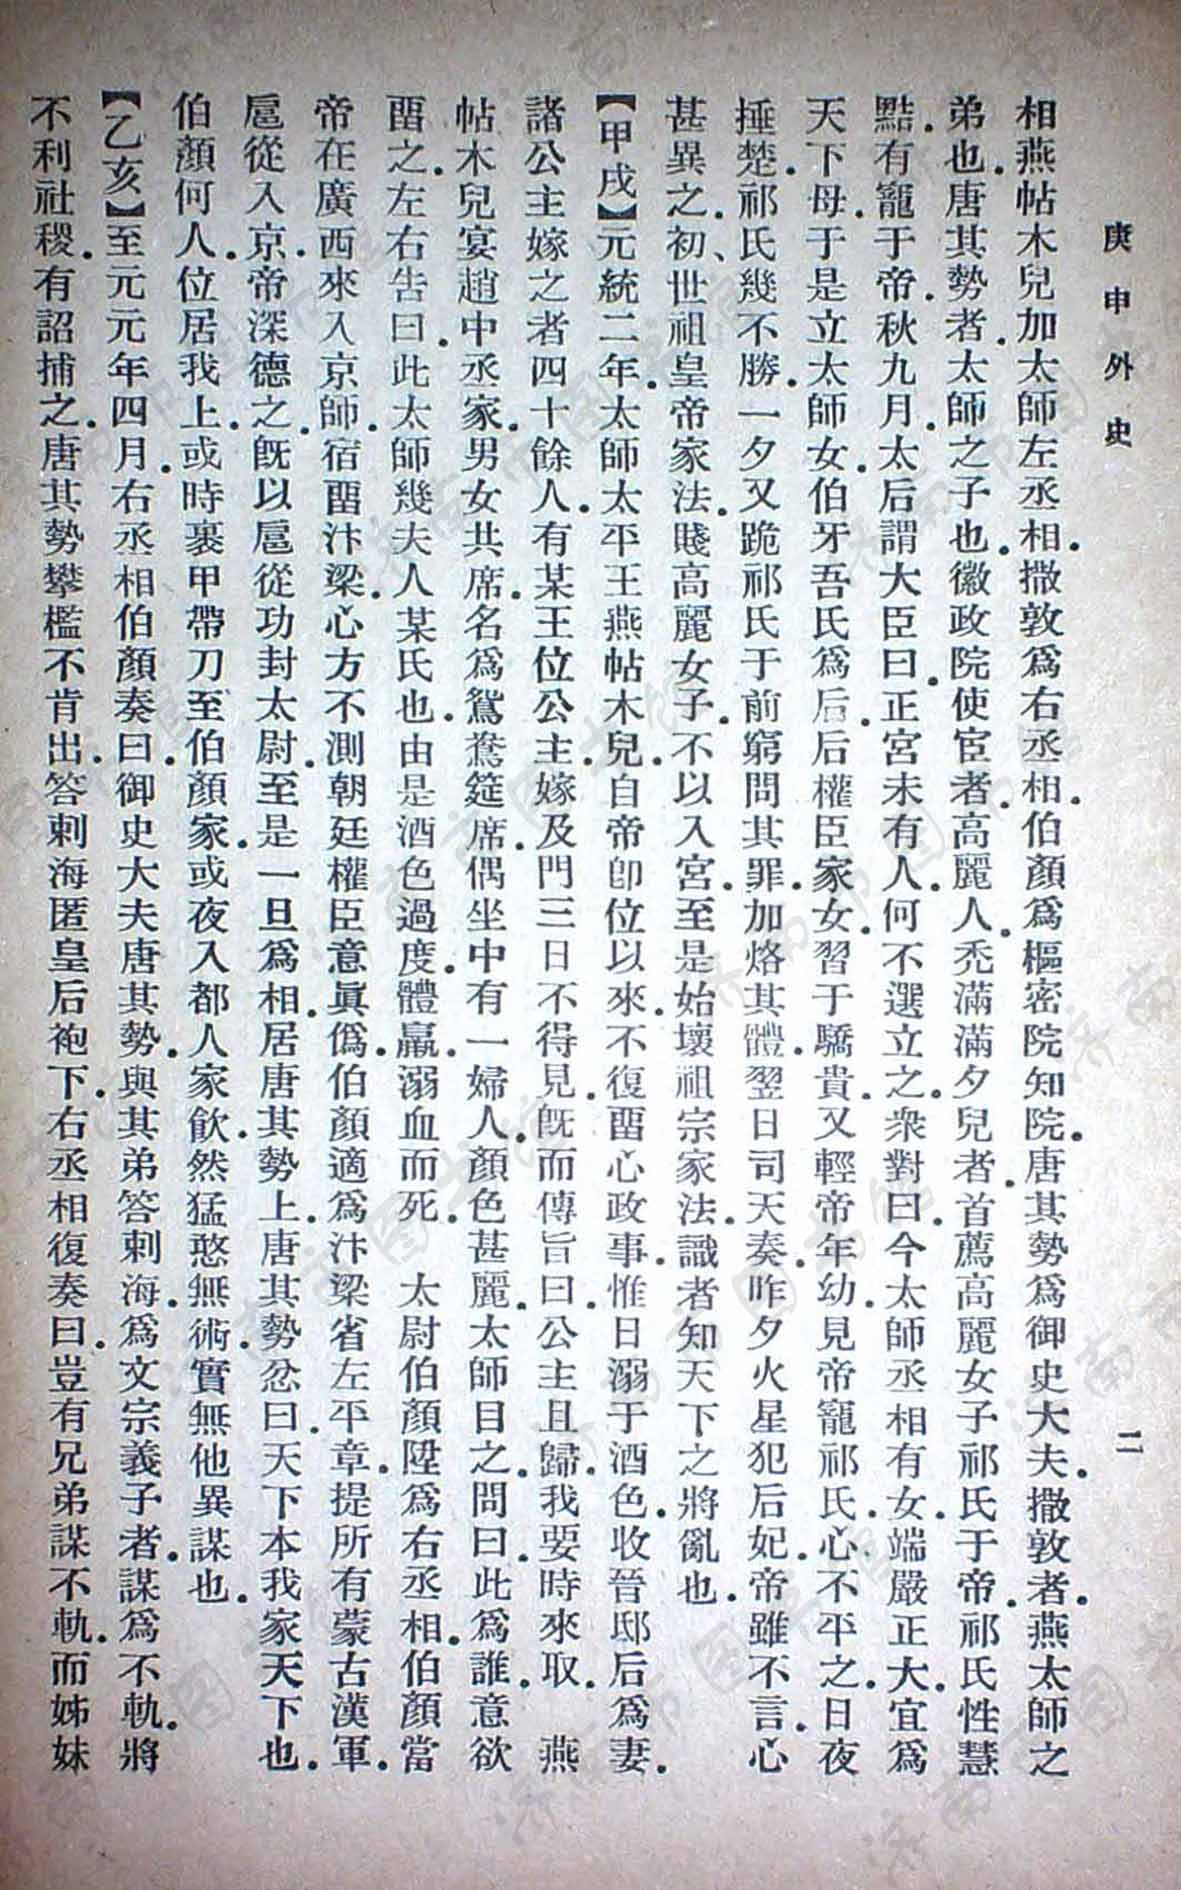 庚申外史
二
相燕帖木兒加太師左丞相．撒敦爲右丞相．伯顏爲樞密院知院．唐其勢爲御史大夫．撒敦者．燕太師之
弟也．唐其勢者．太師之子也．徽政院使宦者．高麗人．禿滿滿夕兒者．首薦高麗女子祁氏于帝．祁氏性慧
黠．有寵于帝．秋九月．太后謂大臣曰．正宮未有人．何不選立之．衆對曰．今太師丞相有女．端嚴正大．宜爲
天下母．于是立太師女．伯牙吾氏爲后．后權臣家女．習于驕貴．又輕帝年幼．見帝寵祁氏．心不平之．日夜
捶楚．祁氏幾不勝．一夕又跪祁氏于前．窮問其罪．加烙其體．翌日司天奏．昨夕火星犯后妃．帝雖不言．心
甚異之．初、世祖皇帝家法．賤高麗女子．不以入宮．至是始壞祖宗家法．識者知天下之將亂也．
【甲戌】元統二年．太師太平王燕帖木兒．自帝卽位以來．不復畱心政事．惟日溺于酒色．收晉邸后爲妻．
諸公主嫁之者四十餘人．有某王位公主．嫁及門三日不得見．旣而傳旨曰．公主且歸．我要時來取．　燕
帖木兒宴趙中丞家．男女共席．名爲鴛鴦筵席．偶坐中有一婦人．顏色甚麗．太師目之．問曰．此爲誰．意欲
畱之．左右告曰．此太師幾夫人某氏也．由是酒色過度．體羸．溺血而死．　太尉伯顏陞爲右丞相．伯顏當
帝在廣西來入京師．宿畱汴梁．心方不測朝廷權臣意眞僞．伯顏適爲汴梁省左平章．提所有蒙古漢軍．
扈從入京．帝深德之．旣以扈從功封太尉．至是一旦爲相．居唐其勢上．唐其勢忿曰．天下本我家天下也．
伯顏何人．位居我上．或時裹甲帶刀．至伯顏家．或夜入都人家飲．然猛憨無術．實無他異謀也．
【乙亥】至元元年四月．右丞相伯顏奏曰．御史大夫唐其勢．與其弟答剌海．爲文宗義子者．謀爲不軌．將
不利社稷．有詔捕之．唐其勢攀檻不肯出．答剌海匿皇后袍下．右丞相復奏曰．豈有兄弟謀不軌．而姊妹